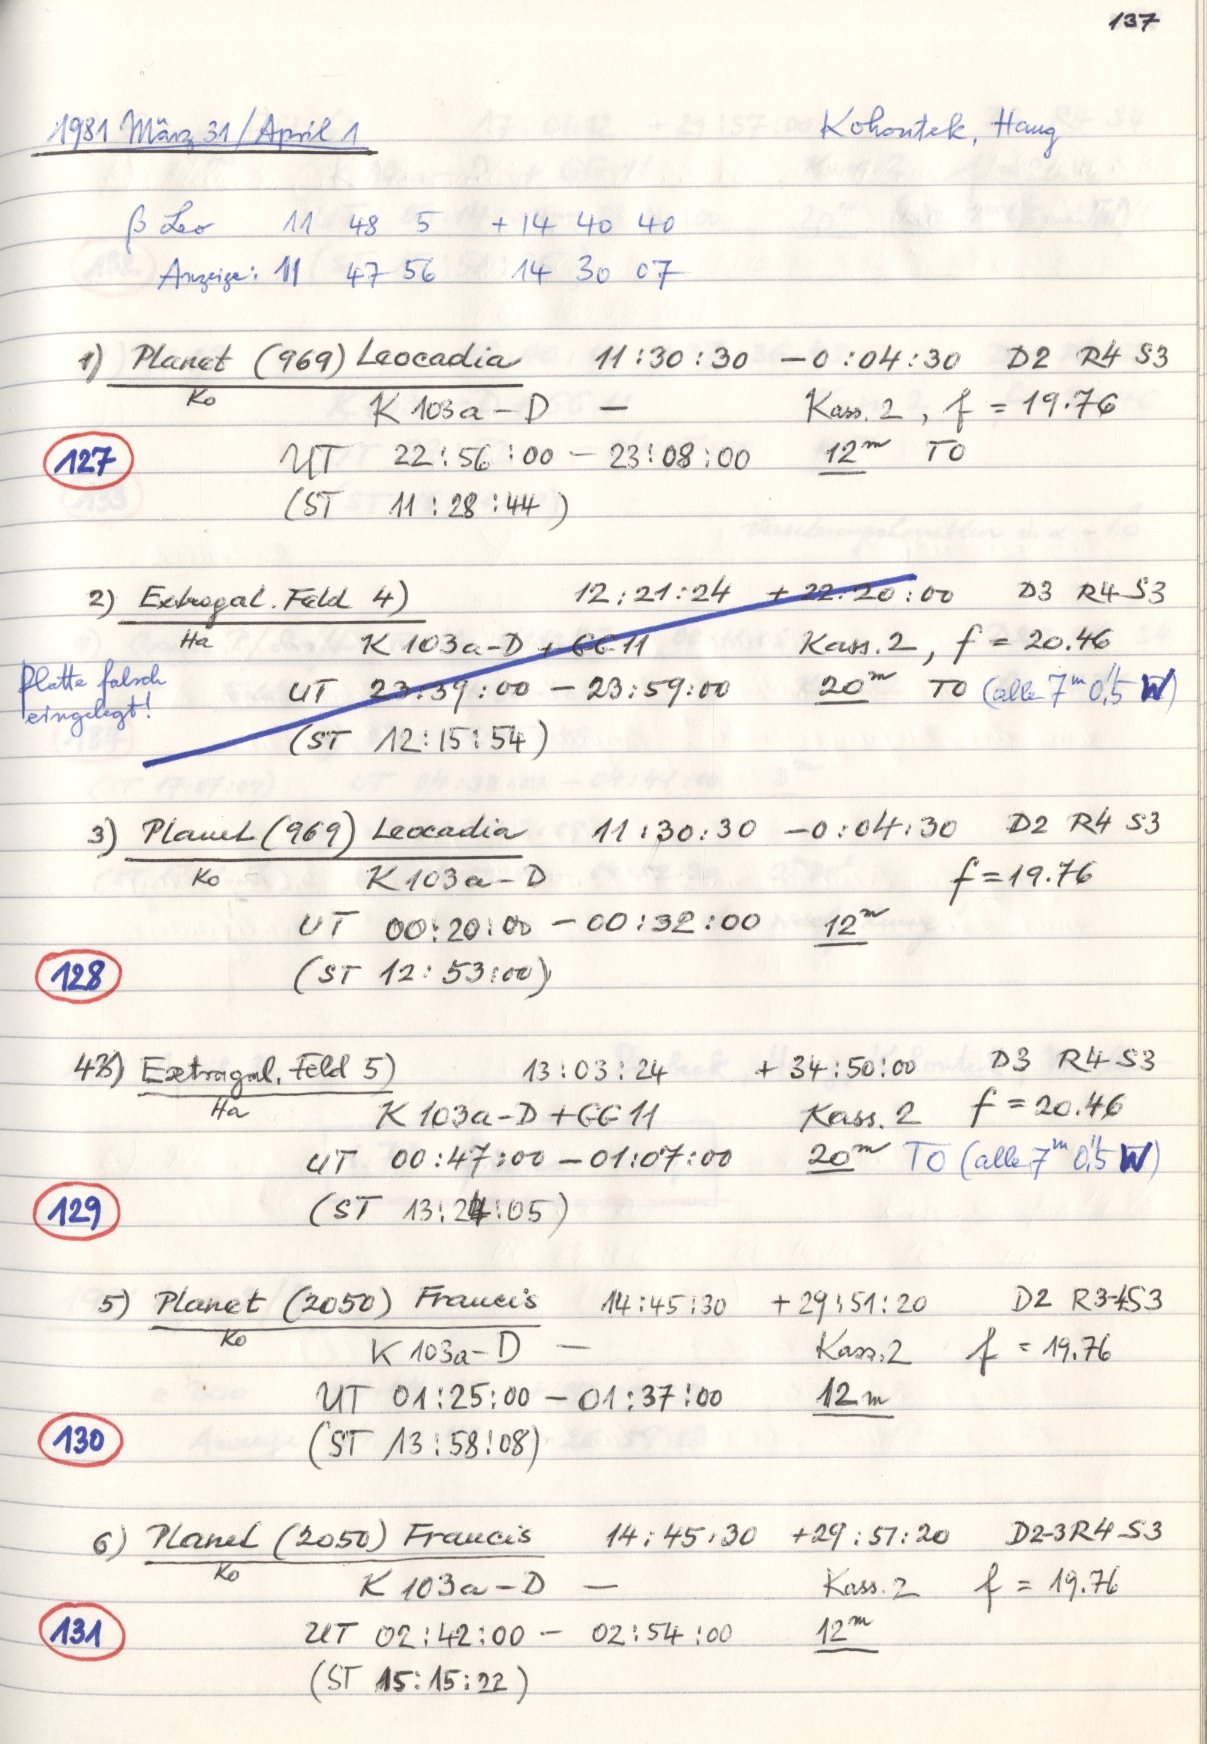 137
1981 März 31/April 1 Kohoutek, Haug
β Leo 11 48 5 +14 40 40
Anzeige: 11 47 56 14 30 07
1) Planet (969) Leocadia 11:30:30 -0:04:30 D2 R4 S3
Ko K 103a-D — Kass. 2, f = 19.76
127 UT 22:56:00 - 23:08:00 12m TO
(ST 11:28:44)
2) Extragal. Feld 4) 12:21:24 +22:20:00 D3 R4-S3
Ha K 103a-D + GG11 Kass. 2, f = 20.46
Platte falsch UT 23:39:00 - 23:59:00 20m TO (alle 7m 0".5 W)
eingelegt! (ST 12:15:54)
3) Planet (969) Leocadia 11:30:30 -0:04:30 D2 R4 S3
Ko K 103a-D f = 19.76
UT 00:20:00 - 00:32:00 12m
128 (ST 12:53:00)
4) Extragal. Feld 5) 13:03:24 +34:50:00 D3 R4-S3
Ha K 103a-D + GG11 Kass. 2 f = 20.46
UT 00:47:00 - 01:07:00 20m TO (alle 7m 0".5 W)
129 (ST 13:24:05)
5) Planet (2050) Francis 14:45:30 +29:51:20 D2 R3-4S3
Ko K 103a-D — Kass. 2 f = 19.76
UT 01:25:00 - 01:37:00 12m
130 (ST 13:58:08)
6) Planet (2050) Francis 14:45:30 +29:51:20 D2-3R4-S3
Ko K 103a-D — Kass. 2 f = 19.76
131 UT 02:42:00 - 02:54:00 12m
(ST 15:15:22)